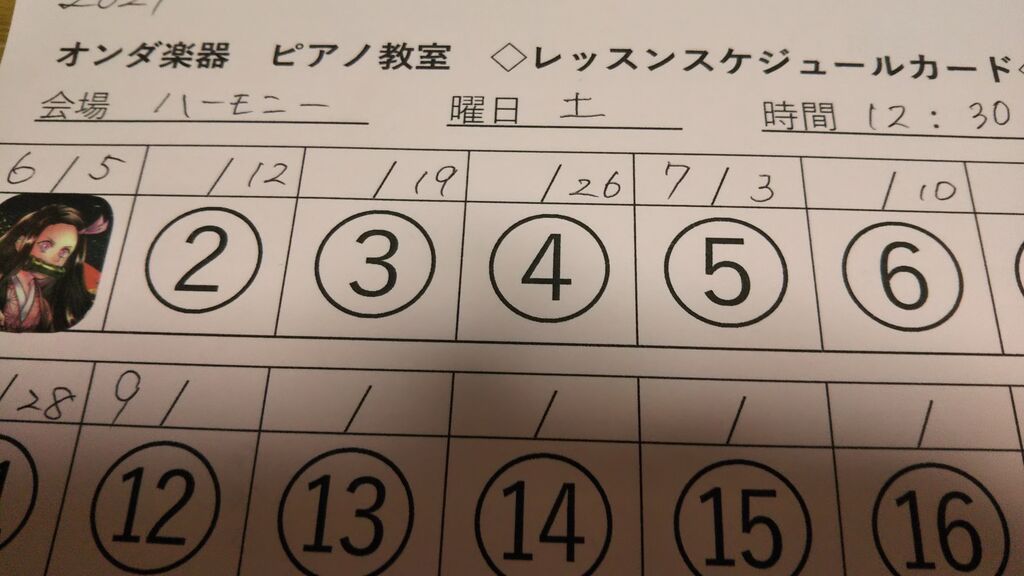 2021
オンダ楽器 ピアノ教室 ◇レッスンスケジュールカード
会場 ハーモニー 曜日 土 時間 12:30
6/5 /12 /19 /26 7/3 /10
② ③ ④ ⑤ ⑥
/28 9/ / / / /
⑫ ⑬ ⑭ ⑮ ⑯